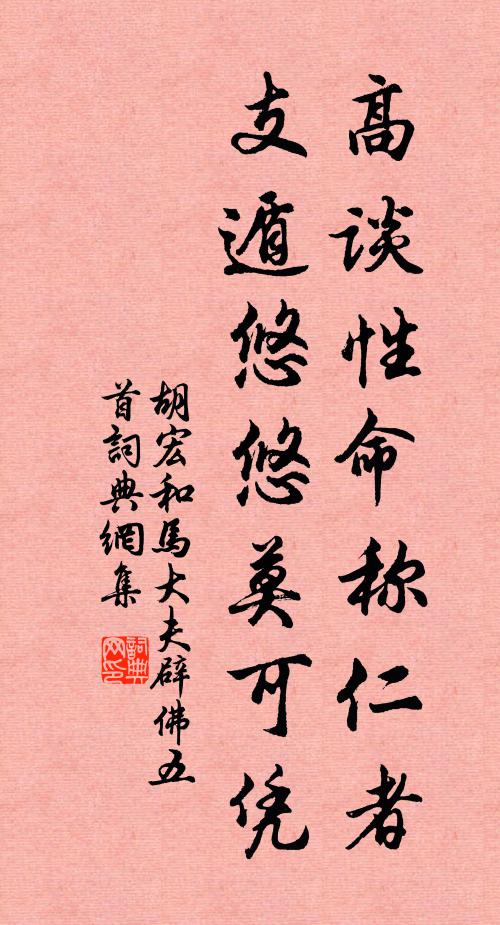 高谈性命称仁者
支遁悠悠莫可凭
胡宏和馬大夫辟佛五
首詞典網集
詞典
网印